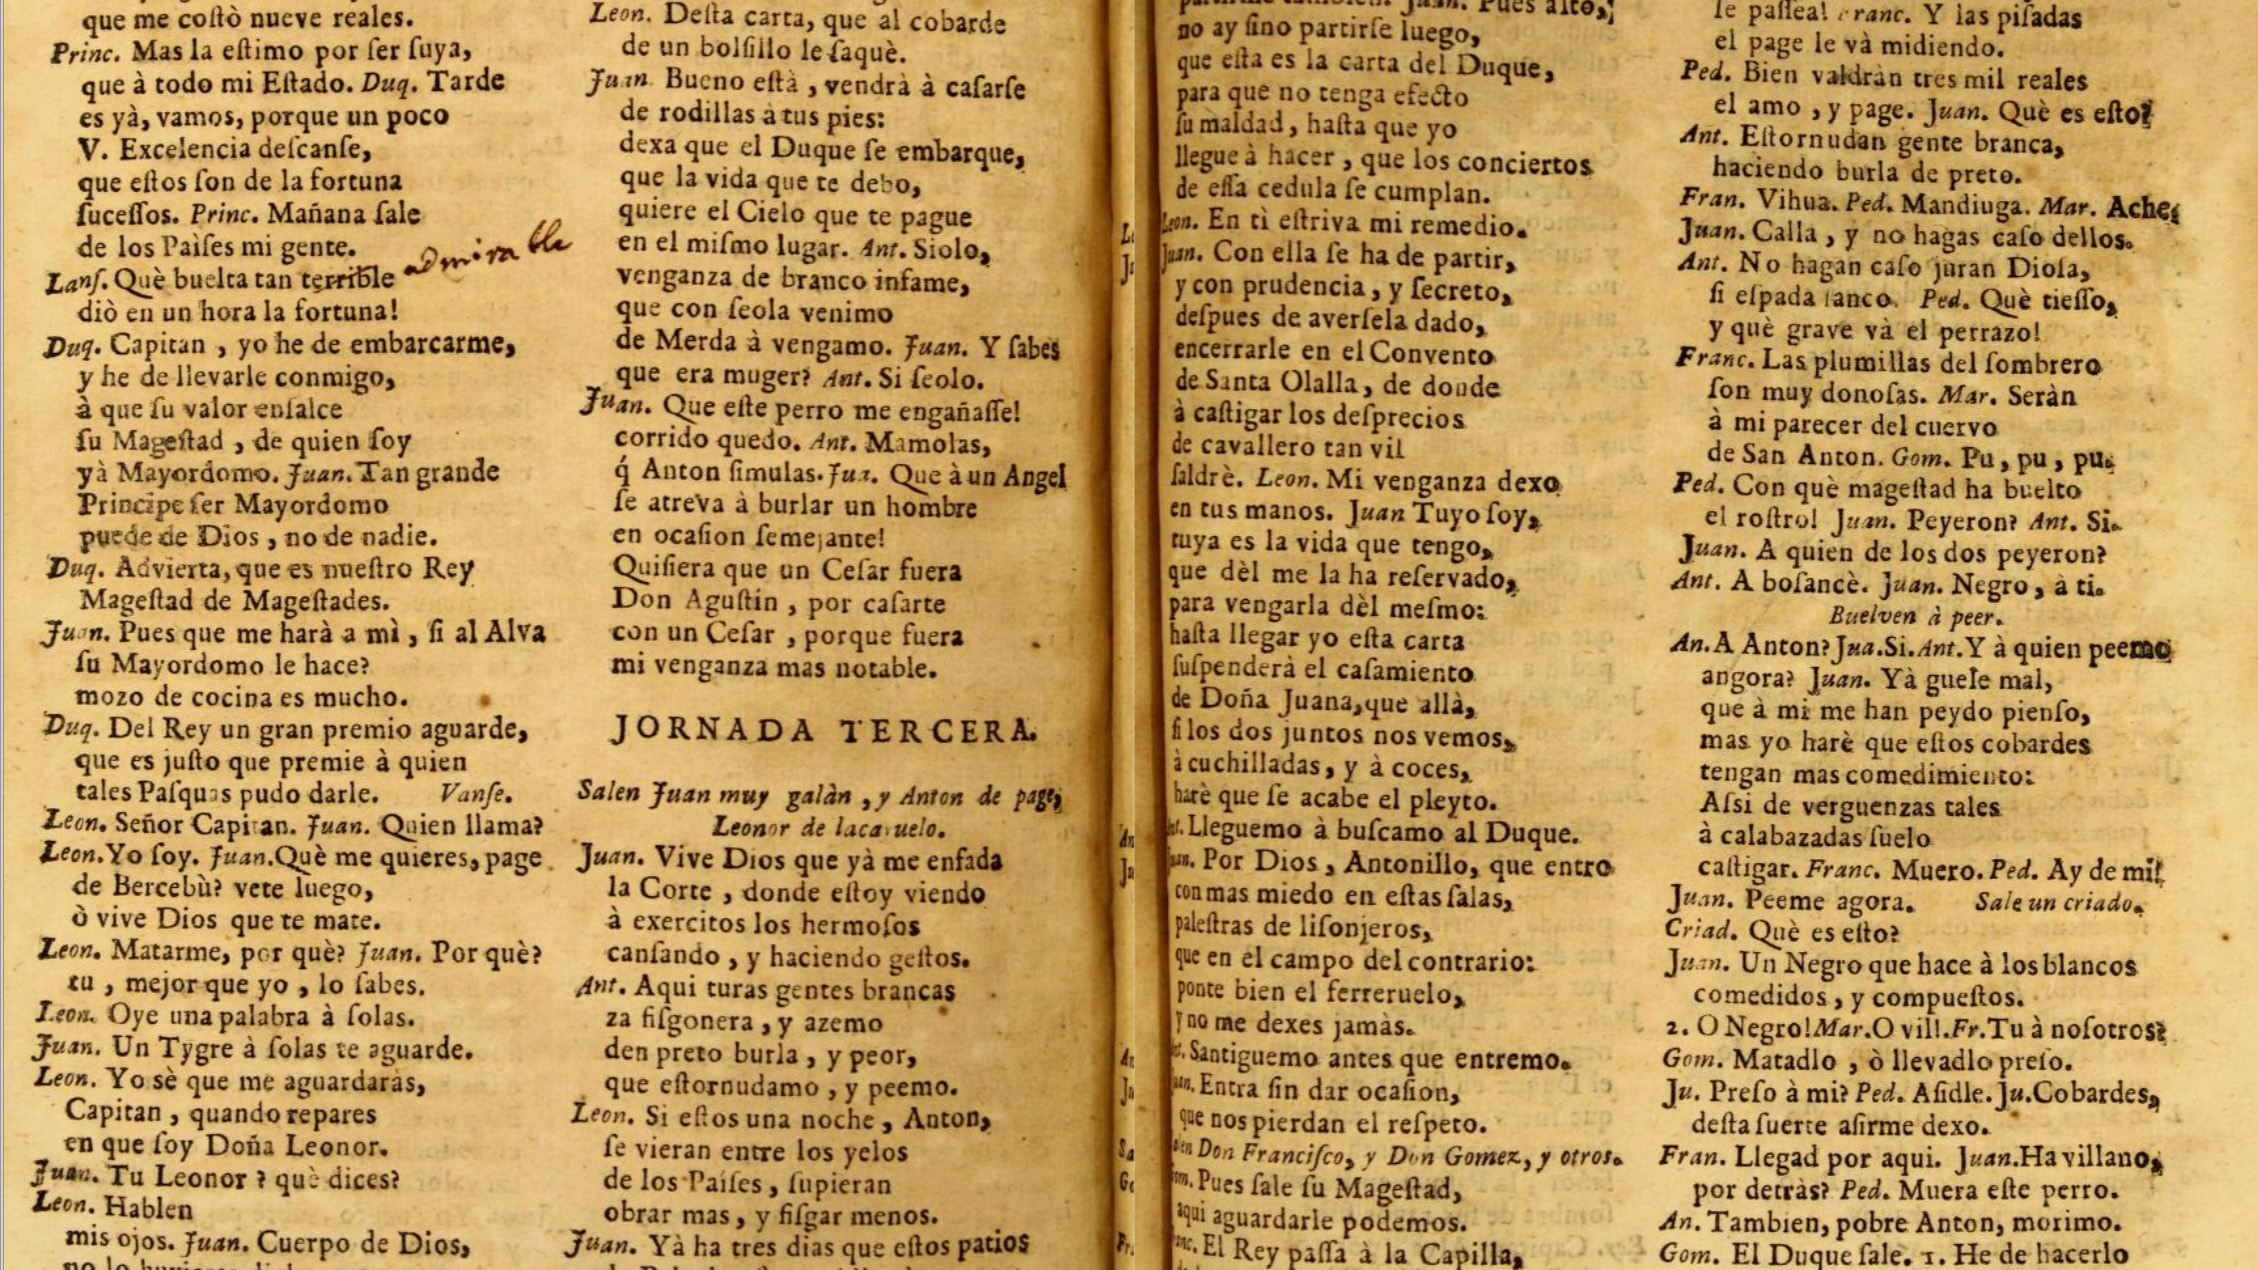 que me coſtò nueve reales.
Princ. Mas la eſtimo por ſer ſuya,
que à todo mi Eſtado. Duq. Tarde
es yà, vamos, porque un poco
V. Excelencia deſcanſe,
que eſtos ſon de la fortuna
ſuceſſos. Princ. Mañana ſale
de los Paìſes mi gente.
Lanſ. Què buelta tan terrible admirable
diò en un hora la fortuna!
Duq. Capitan , yo he de embarcarme,
y he de llevarle conmigo,
à que ſu valor enſalce
ſu Mageſtad , de quien ſoy
yà Mayordomo. Juan. Tan grande
Principe ſer Mayordomo
puede de Dios , no de nadie.
Duq. Advierta, que es nueſtro Rey
Mageſtad de Mageſtades.
Juan. Pues que me harà a mì , ſi al Alva
ſu Mayordomo le hace?
mozo de cocina es mucho.
Duq. Del Rey un gran premio aguarde,
que es juſto que premie à quien
tales Paſquas pudo darle. Vanſe.
Leon. Señor Capitan. Juan. Quien llama?
Leon. Yo ſoy. Juan. Què me quieres, page
de Bercebù? vete luego,
ò vive Dios que te mate.
Leon. Matarme, por què? Juan. Por què?
tu , mejor que yo , lo ſabes.
Leon. Oye una palabra à ſolas.
Juan. Un Tygre à ſolas te aguarde.
Leon. Yo sè que me aguardaràs,
Capitan , quando repares
en que ſoy Doña Leonor.
Juan. Tu Leonor ? què dices?
Leon. Hablen
mis ojos. Juan. Cuerpo de Dios,
Leon. Deſta carta, que al cobarde
de un bolſillo le ſaquè.
Juan Bueno eſtà , vendrà à caſarſe
de rodillas à tus pies:
dexa que el Duque ſe embarque,
que la vida que te debo,
quiere el Cielo que te pague
en el miſmo lugar. Ant. Siolo,
venganza de branco infame,
que con ſeola venimo
de Merda à vengamo. Juan. Y ſabes
que era muger? Ant. Si ſeolo.
Juan. Que eſte perro me engañaſſe!
corrido quedo. Ant. Mamolas,
q́ Anton ſimulas. Jua. Que à un Angel
ſe atreva à burlar un hombre
en ocaſion ſemejante!
Quiſiera que un Ceſar fuera
Don Aguſtin , por caſarte
con un Ceſar , porque fuera
mi venganza mas notable.
JORNADA TERCERA.
Salen Juan muy galàn , y Anton de page,
Leonor de lacayuelo.
Juan. Vive Dios que yà me enfada
la Corte , donde eſtoy viendo
à exercitos los hermoſos
canſando , y haciendo geſtos.
Ant. Aqui turas gentes brancas
za fiſgonera , y azemo
den preto burla , y peor,
que eſtornudamo , y peemo.
Leon. Si eſtos una noche , Anton,
ſe vieran entre los yelos
de los Paíſes , ſupieran
obrar mas , y fiſgar menos.
Juan. Yà ha tres dias que eſtos patios
Juan. Pues alto,
no ay ſino partirſe luego,
que eſta es la carta del Duque,
para que no tenga efecto
ſu maldad , haſta que yo
llegue à hacer , que los conciertos
de eſſa cedula ſe cumplan.
Leon. En tì eſtriva mi remedio.
Juan. Con ella ſe ha de partir,
y con prudencia , y ſecreto,
deſpues de averſela dado,
encerrarle en el Convento
de Santa Olalla, de donde
à caſtigar los deſprecios
de cavallero tan vil
ſaldrè. Leon. Mi venganza dexo
en tus manos. Juan Tuyo ſoy,
tuya es la vida que tengo,
que dèl me la ha reſervado,
para vengarla dèl meſmo:
haſta llegar yo eſta carta
ſuſpenderà el caſamiento
de Doña Juana, que allà,
ſi los dos juntos nos vemos,
à cuchilladas, y à coces,
harè que ſe acabe el pleyto.
Ant. Lleguemo à buſcamo al Duque.
Juan. Por Dios , Antonillo, que entro
con mas miedo en eſtas ſalas,
paleſtras de liſonjeros,
que en el campo del contrario:
ponte bien el ferreruelo,
y no me dexes jamàs.
Ant. Santiguemo antes que entremo.
Juan. Entra ſin dar ocaſion,
que nos pierdan el reſpeto.
Salen Don Franciſco, y Don Gomez, y otros.
Gom. Pues ſale ſu Mageſtad,
aqui aguardarle podemos.
Franc. El Rey paſſa à la Capilla,
le paſſea! Franc. Y las piſadas
el page le và midiendo.
Ped. Bien valdràn tres mil reales
el amo , y page. Juan. Què es eſto?
Ant. Eſtornudan gente branca,
haciendo burla de preto.
Fran. Vihua. Ped. Mandiuga. Mar. Ache,
Juan. Calla , y no hagas caſo dellos.
Ant. No hagan caſo juran Dioſa,
ſi eſpada ranco. Ped. Què tieſſo,
y què grave và el perrazo!
Franc. Las plumillas del ſombrero
ſon muy donoſas. Mar. Seràn
à mi parecer del cuervo
de San Anton. Gom. Pu , pu , pu.
Ped. Con què mageſtad ha buelto
el roſtro! Juan. Peyeron? Ant. Si.
Juan. A quien de los dos peyeron?
Ant. A boſancè. Juan. Negro , à ti.
Buelven à peer.
An. A Anton? Jua. Si. Ant. Y à quien peemo
angora? Juan. Yà guele mal,
que à mi me han peydo pienſo,
mas yo harè que eſtos cobardes
tengan mas comedimiento:
Aſsi de verguenzas tales
à calabazadas ſuelo
caſtigar. Franc. Muero. Ped. Ay de mi!
Juan. Peeme agora. Sale un criado.
Criad. Què es eſto?
Juan. Un Negro que hace à los blancos
comedidos , y compueſtos.
2. O Negro! Mar. O vil!. Fr. Tu à noſotros?
Gom. Matadlo , ò llevadlo preſo.
Ju. Preſo à mi? Ped. Aſidle. Ju. Cobardes,
deſta ſuerte aſirme dexo.
Fran. Llegad por aqui. Juan. Ha villano,
por detràs? Ped. Muera eſte perro.
An. Tambien, pobre Anton, morimo.
Gom. El Duque ſale. 1. He de hacerlo